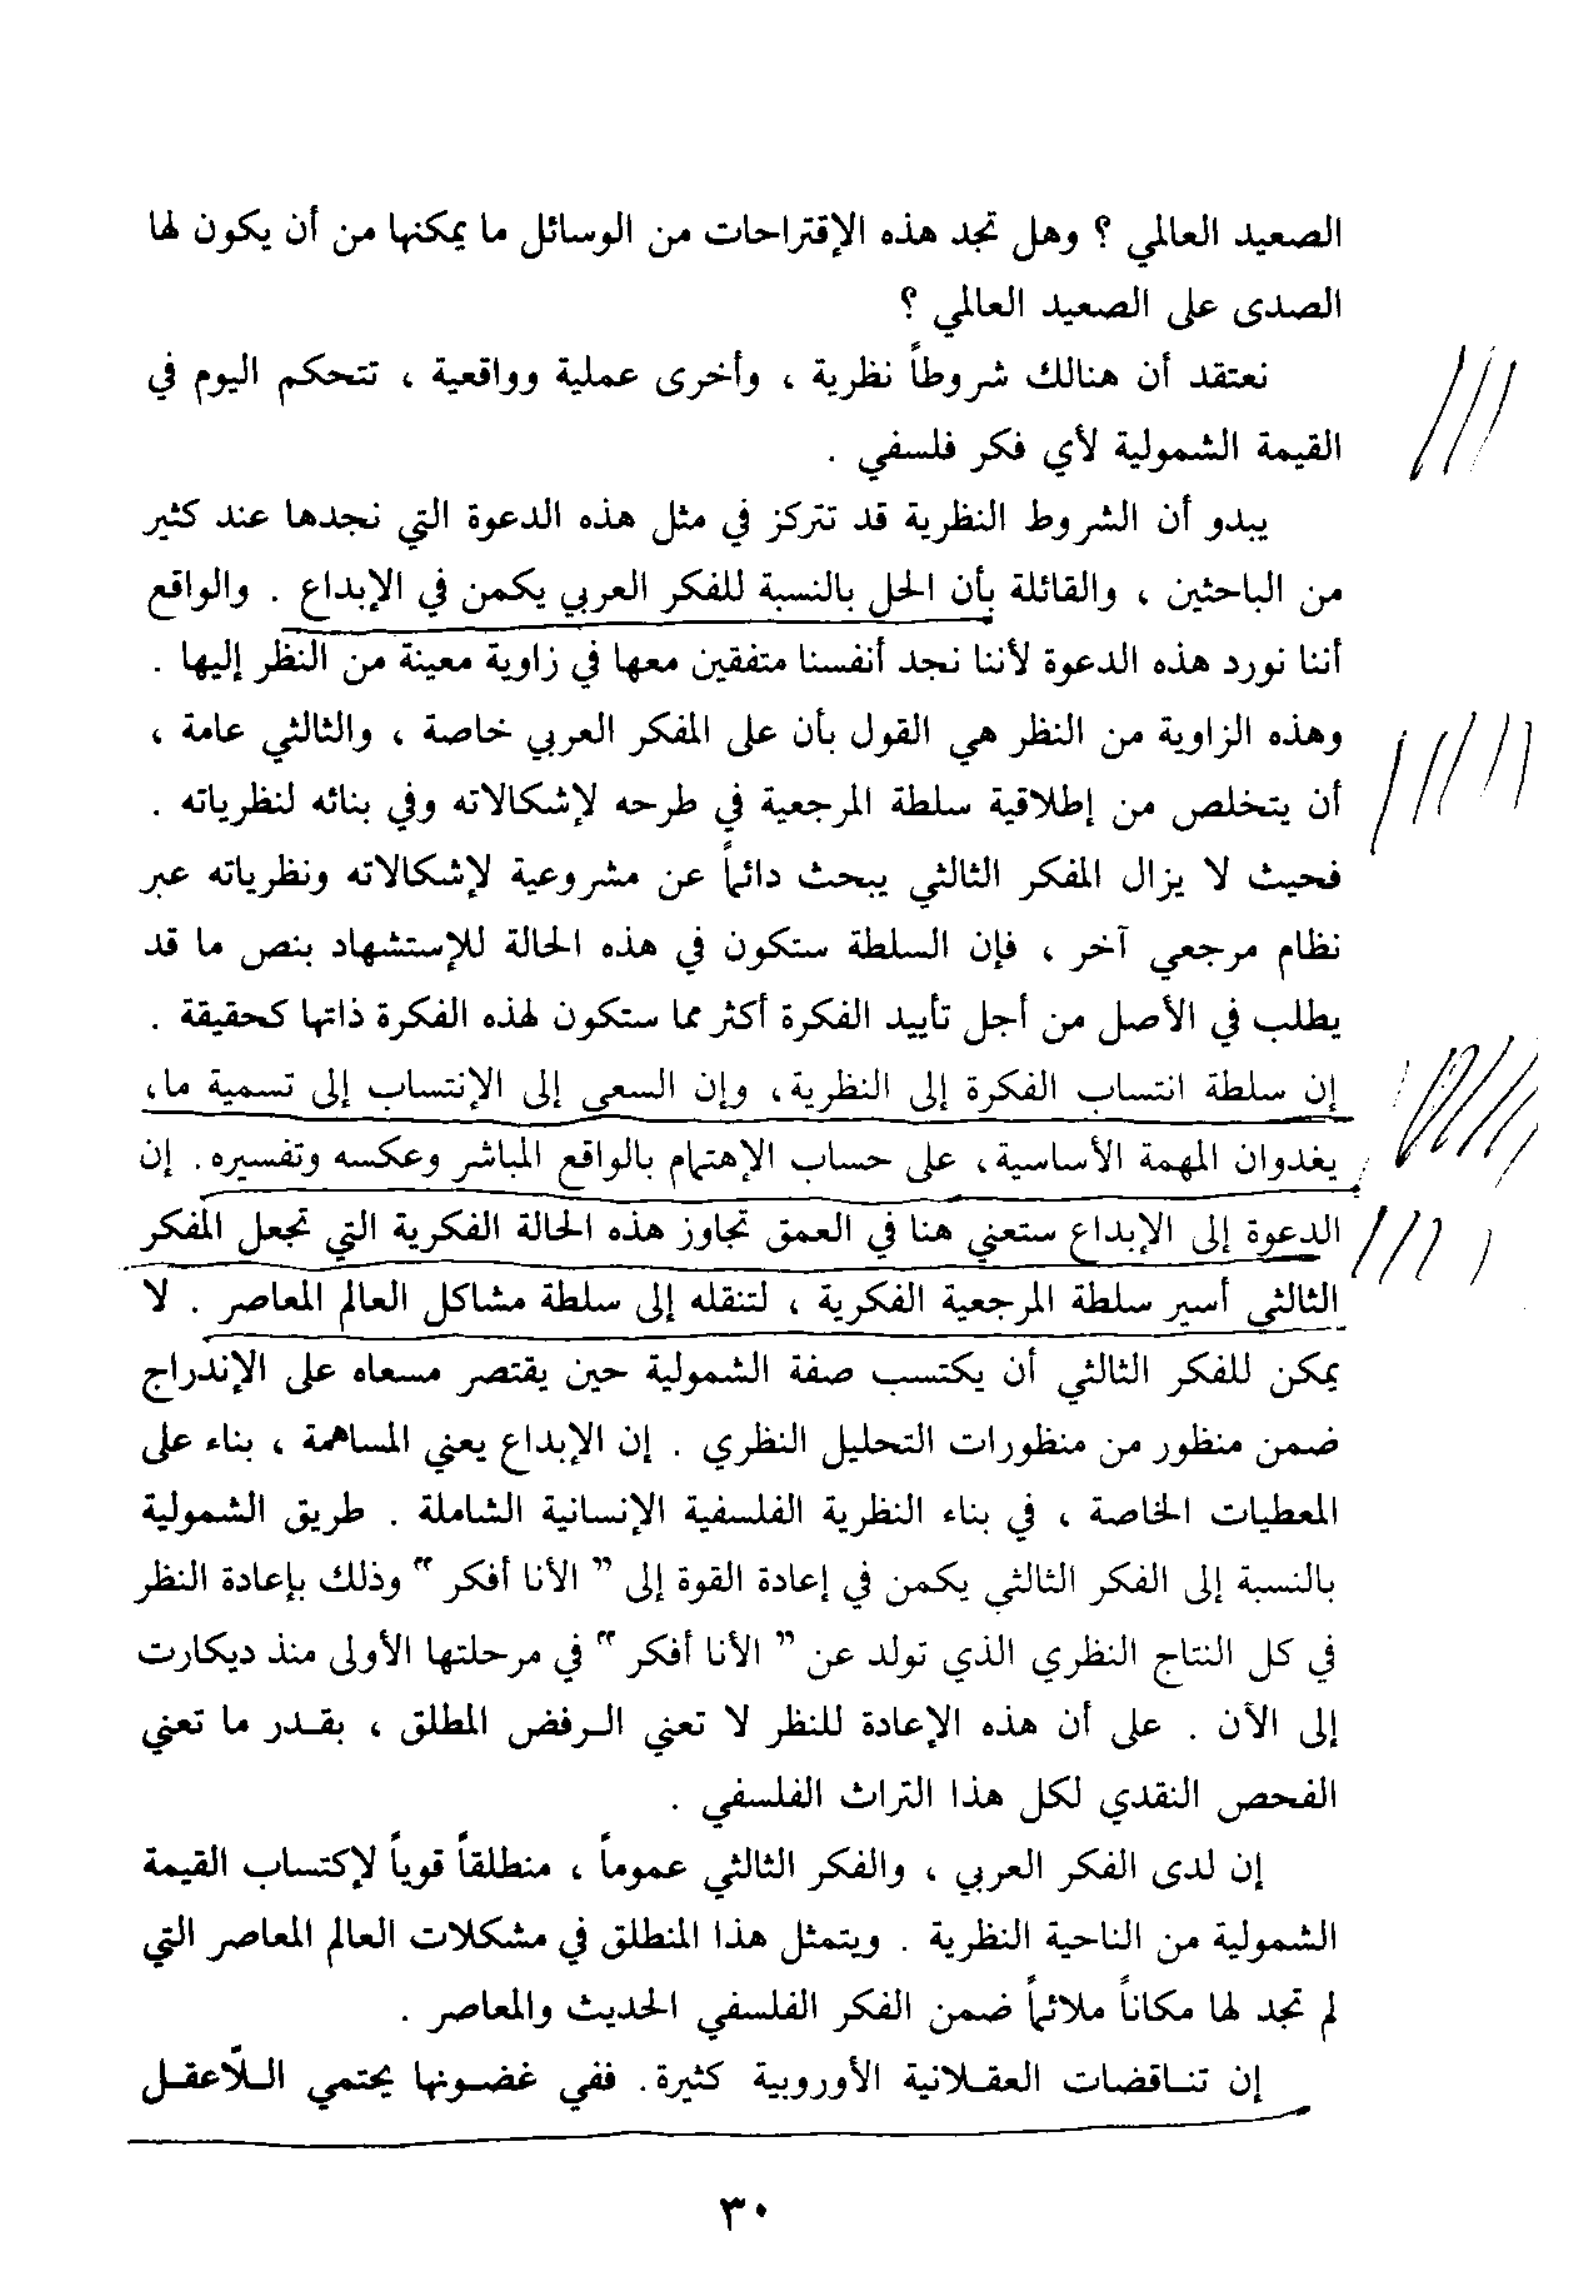 الصعيد العالمي ؟ وهل تجد هذه الإقتراحات من الوسائل ما يمكنها من أن يكون لها
الصدى على الصعيد العالمي ؟
نعتقد أن هنالك شروطاً نظرية ، وأخرى عملية وواقعية ، تتحكم اليوم في
القيمة الشمولية لأي فكر فلسفي .
يبدو أن الشروط النظرية قد تتركز في مثل هذه الدعوة التي نجدها عند كثير
من الباحثين ، والقائلة بأن الحل بالنسبة للفكر العربي يكمن في الإبداع . والواقع
أننا نورد هذه الدعوة لأننا نجد أنفسنا متفقين معها في زاوية معينة من النظر إليها .
وهذه الزاوية من النظر هي القول بأن على المفكر العربي خاصة ، والثالثي عامة ،
أن يتخلص من إطلاقية سلطة المرجعية في طرحه لإشكالاته وفي بنائه لنظرياته .
فحيث لا يزال المفكر الثالثي يبحث دائماً عن مشروعية لإشكالاته ونظرياته عبر
نظام مرجعي آخر ، فإن السلطة ستكون في هذه الحالة للإستشهاد بنص ما قد
يطلب في الأصل من أجل تأييد الفكرة أكثر مما ستكون لهذه الفكرة ذاتها كحقيقة .
إن سلطة انتساب الفكرة إلى النظرية، وإن السعي إلى الإنتساب إلى تسمية ما،
يغدوان المهمة الأساسية، على حساب الإهتمام بالواقع المباشر وعكسه وتفسيره. إن
الدعوة إلى الإبداع ستعني هنا في العمق تجاوز هذه الحالة الفكرية التي تجعل المفكر
الثالثي أسير سلطة المرجعية الفكرية ، لتنقله إلى سلطة مشاكل العالم المعاصر . لا
يمكن للفكر الثالثي أن يكتسب صفة الشمولية حين يقتصر مسعاه على الإندراج
ضمن منظور من منظورات التحليل النظري . إن الإبداع يعني المساهمة ، بناء على
المعطيات الخاصة ، في بناء النظرية الفلسفية الإنسانية الشاملة . طريق الشمولية
بالنسبة إلى الفكر الثالثي يكمن في إعادة القوة إلى ” الأنا أفكر “ وذلك بإعادة النظر
في كل النتاج النظري الذي تولد عن ” الأنا أفكر “ في مرحلتها الأولى منذ ديكارت
إلى الآن . على أن هذه الإعادة للنظر لا تعني الـرفض المطلق ، بقـدر ما تعني
الفحص النقدي لكل هذا التراث الفلسفي .
إن لدى الفكر العربي ، والفكر الثالثي عموماً ، منطلقاً قوياً لإكتساب القيمة
الشمولية من الناحية النظرية . ويتمثل هذا المنطلق في مشكلات العالم المعاصر التي
لم تجد لها مكاناً ملائماً ضمن الفكر الفلسفي الحديث والمعاصر .
إن تنـاقضات العقـلانية الأوروبية كثيرة. ففي غضـونها يحتمي الـلّاعقـل
٣٠